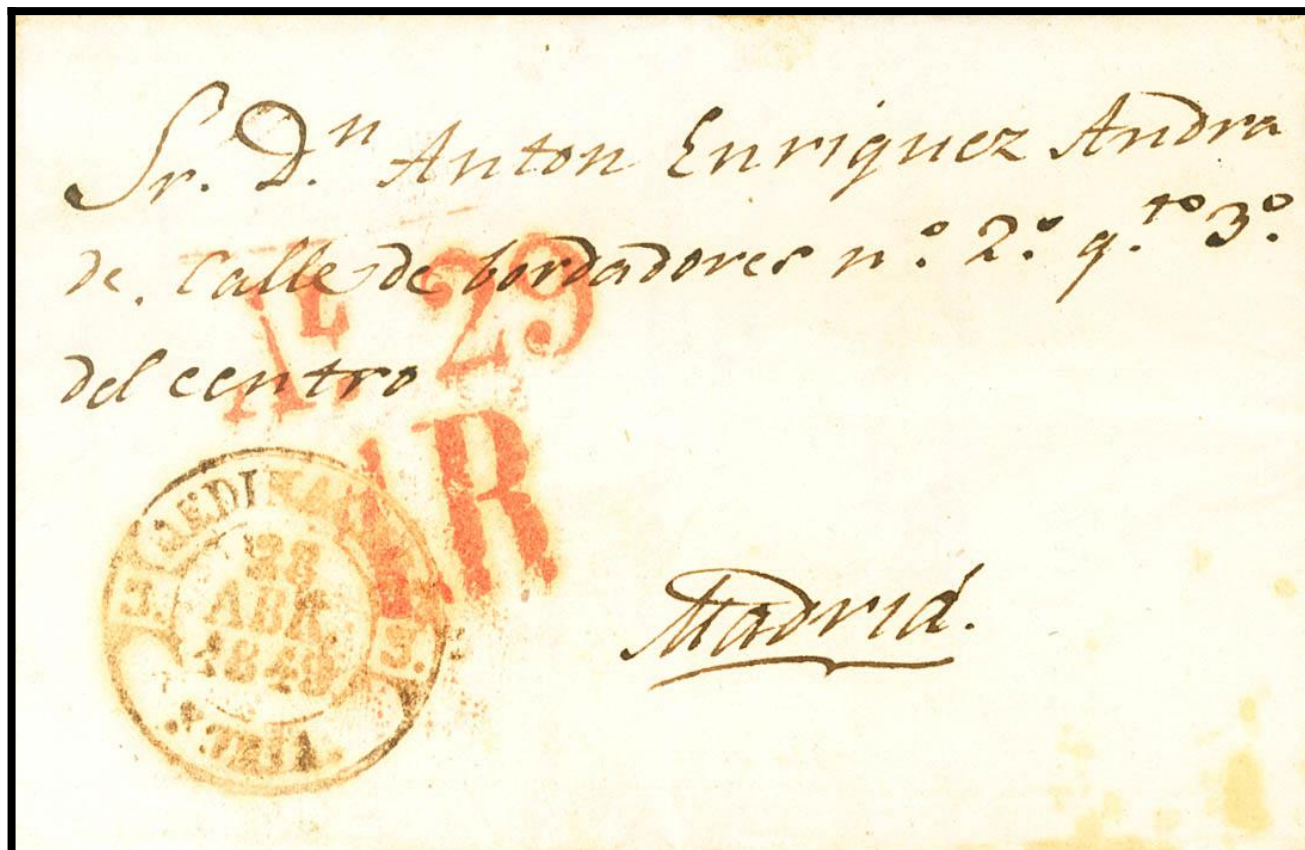 Sr. Dⁿ. Anton Enriquez Andra
de. Calle de bordadores n.º 2.º q.ᵗᵒ 3.º
del centro
Aᴸ 29
AR
28
ABR.
1849
S.
Madrid.